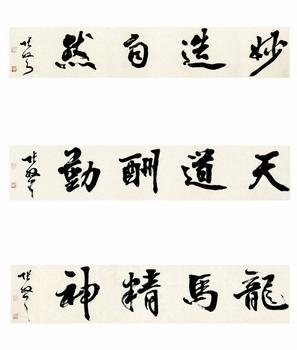 妙造自然
天道酬勤
龍馬精神